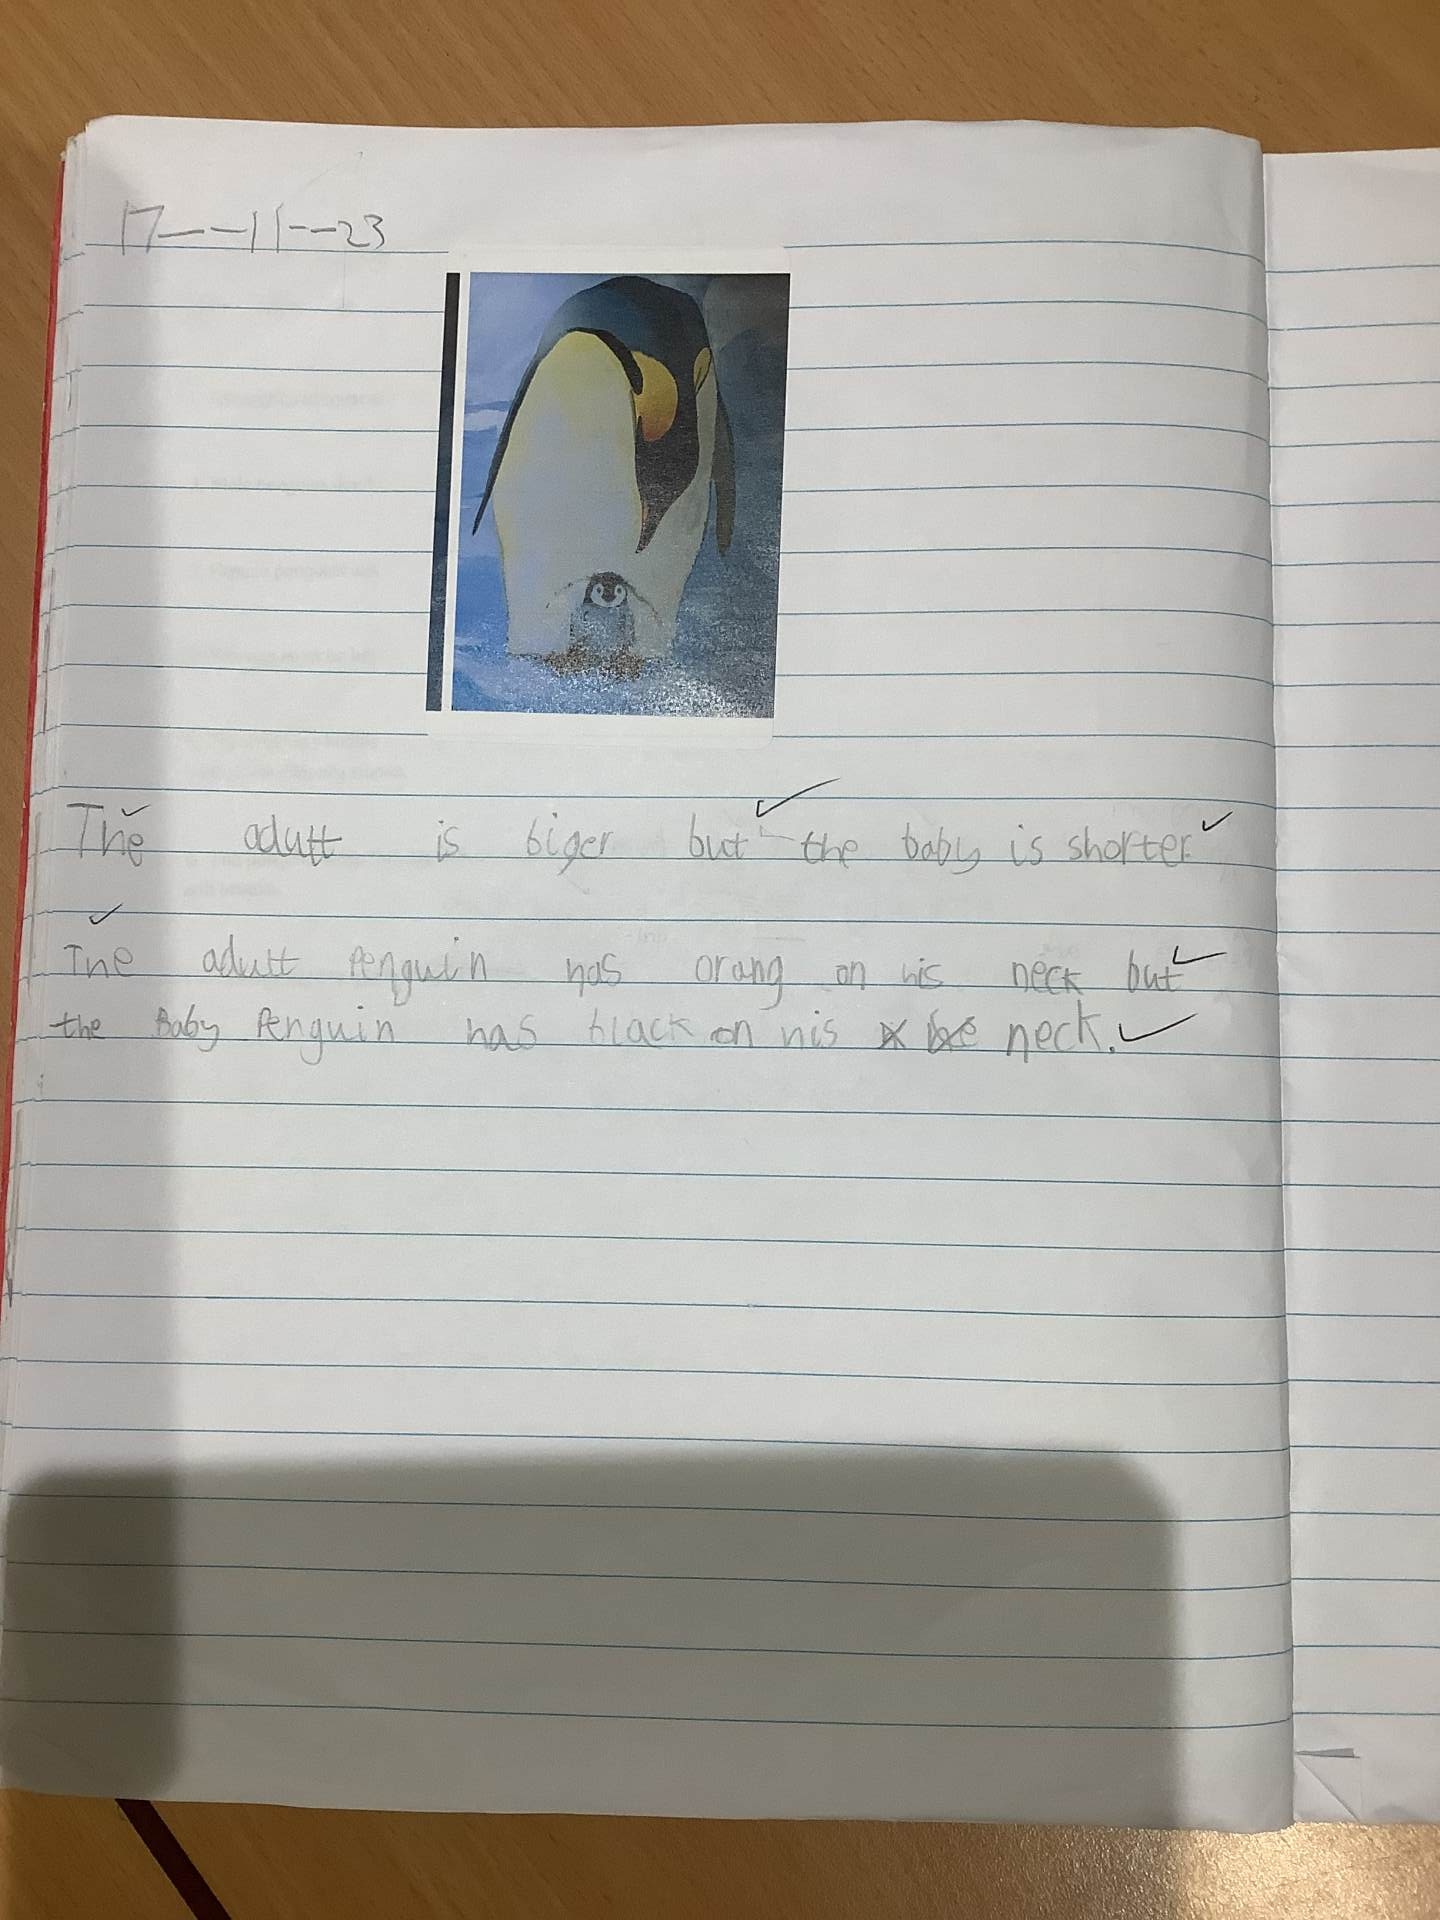 17--11--23
The adult is biger but the baby is shorter.
The adult Penguin has orang on his neck but
the Baby Penguin has black on his neck.